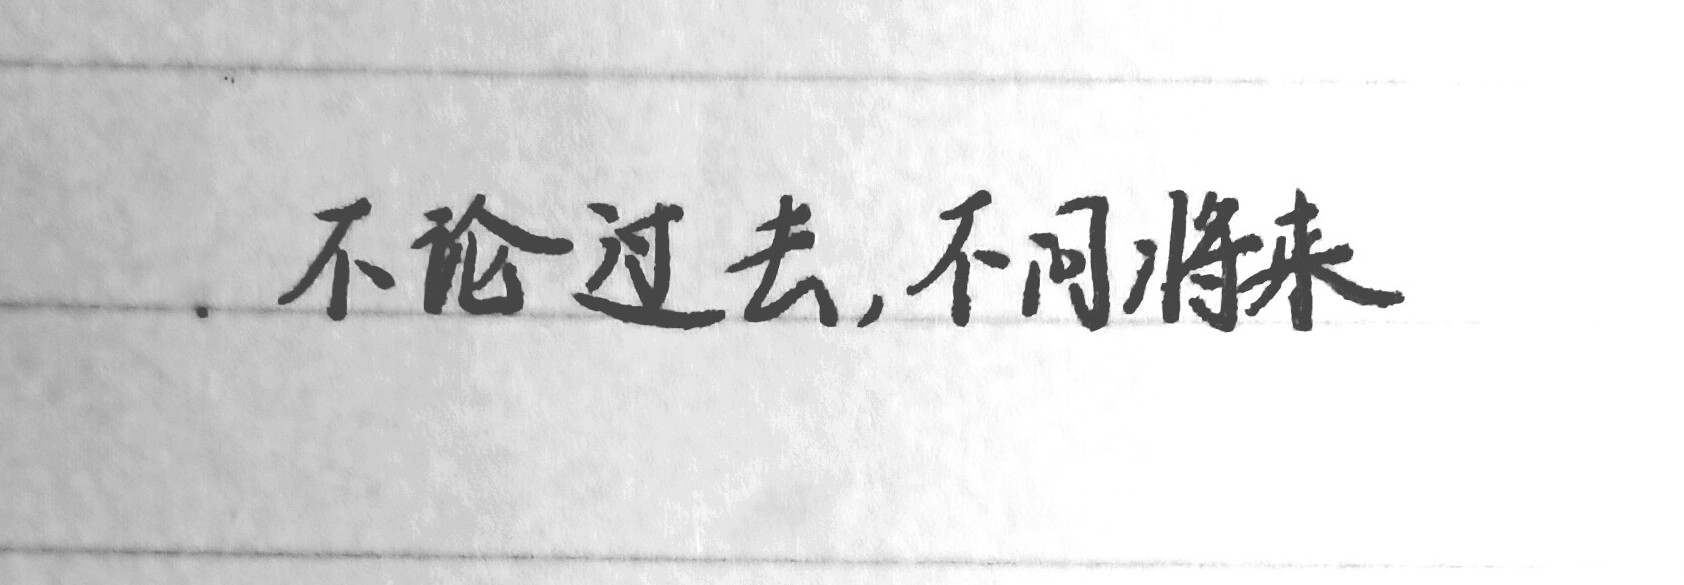 不论过去,不问将来